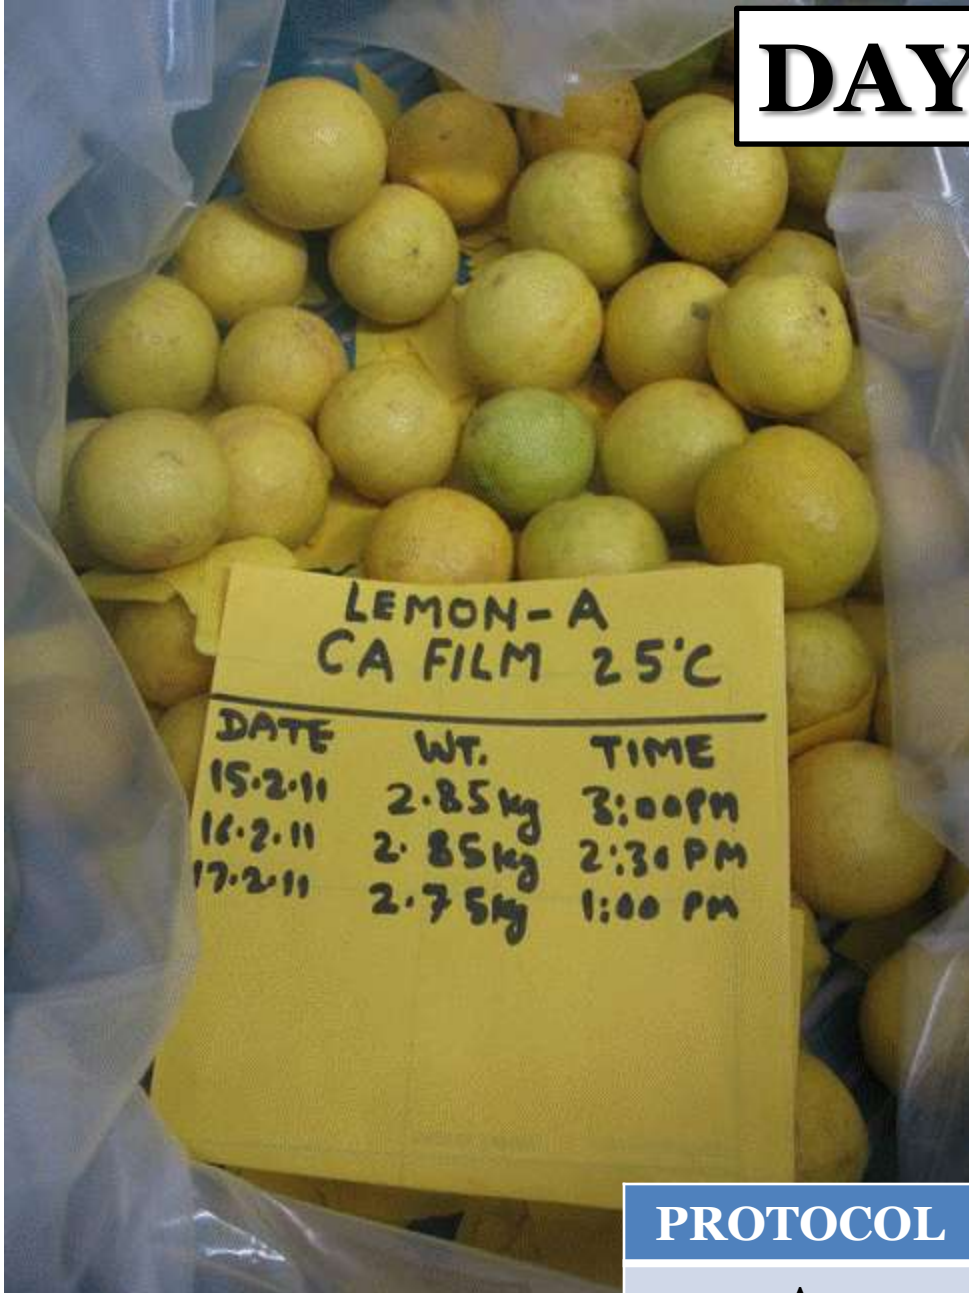 DAY
LEMON-A
CA FILM 25°C
DATE WT. TIME
15.2.11 2.85kg 3:00PM
16.2.11 2.85kg 2:30 PM
17.2.11 2.75kg 1:00 PM
PROTOCOL